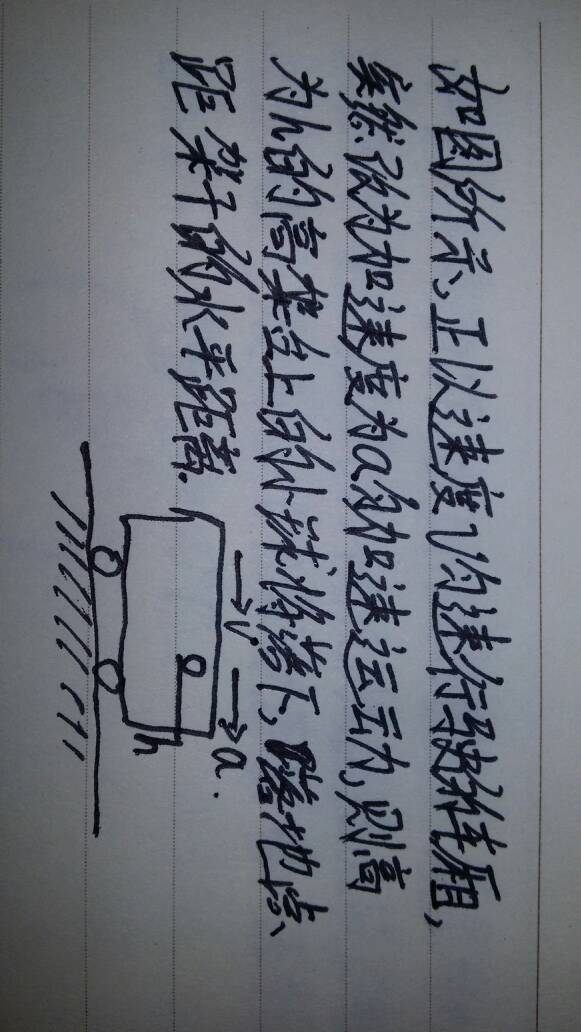 如图所示,正以速度V匀速行驶的车厢,
突然改为加速度为a匀加速运动,则高
为h的高架台上的小球将落下,落地点
距架子的水平距离.
V.
a.
h